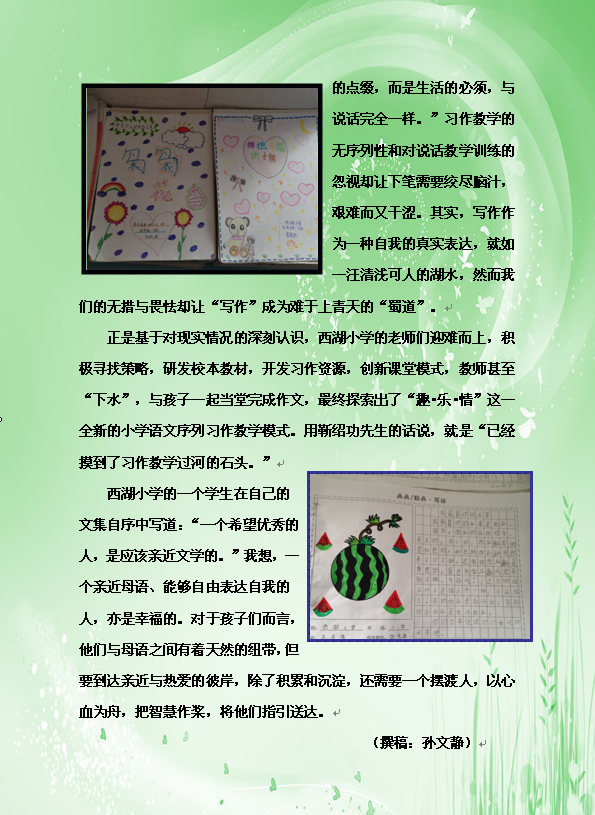 的点缀，而是生活的必须，与
说话完全一样。”习作教学的
无序列性和对说话教学训练的
忽视却让下笔需要绞尽脑汁，
艰难而又干涩。其实，写作作
为一种自我的真实表达，就如
一汪清浅可人的湖水，然而我
们的无措与畏怯却让“写作”成为难于上青天的“蜀道”。
正是基于对现实情况的深刻认识，西湖小学的老师们迎难而上，积
极寻找策略，研发校本教材，开发习作资源，创新课堂模式，教师甚至
“下水”，与孩子一起当堂完成作文，最终探索出了“趣·乐·情”这一
全新的小学语文序列习作教学模式。用靳绍功先生的话说，就是“已经
摸到了习作教学过河的石头。”
画画/贴画·写话
西湖小学的一个学生在自己的
文集自序中写道：“一个希望优秀的
人，是应该亲近文学的。”我想，一
个亲近母语、能够自由表达自我的
人，亦是幸福的。对于孩子们而言，
他们与母语之间有着天然的纽带，但
要到达亲近与热爱的彼岸，除了积累和沉淀，还需要一个摆渡人，以心
血为舟，把智慧作桨，将他们指引送达。
（撰稿：孙文静）